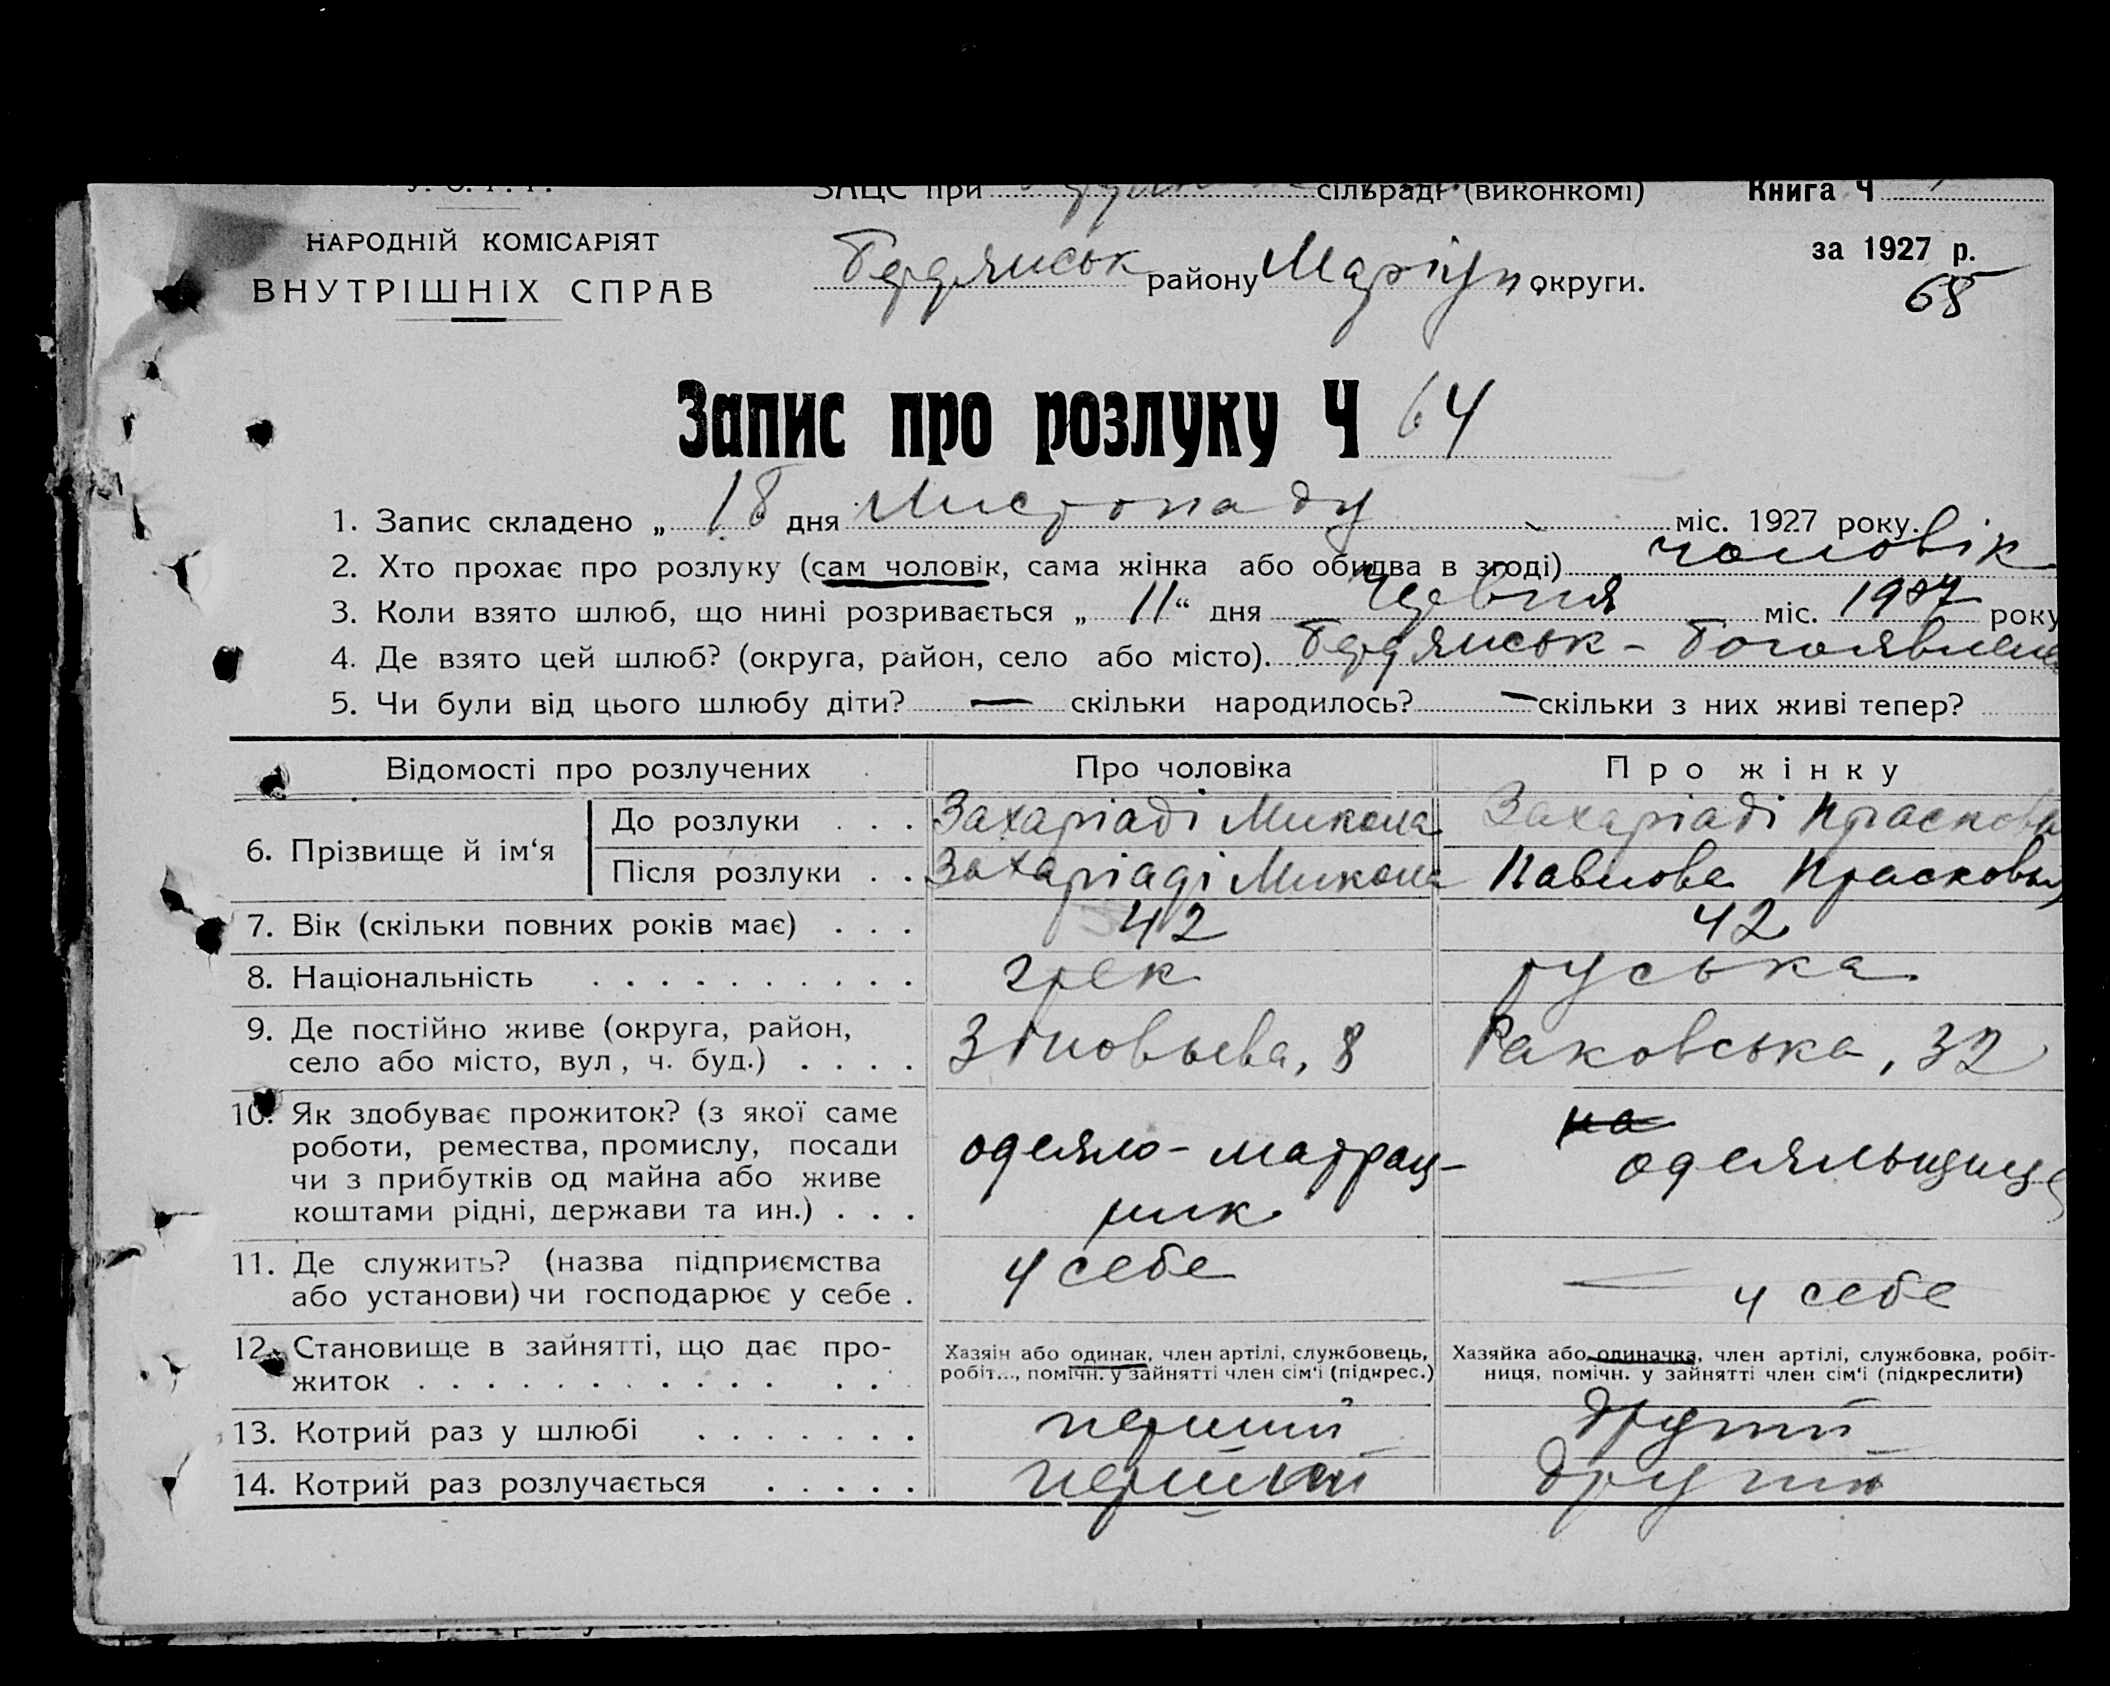 У. С. Р. Р.
ЗАЦС при сільраді (виконкомі) Книга Ч
НАРОДНІЙ КОМІСАРІЯТ
ВНУТРІШНІХ СПРАВ
Бердянськ району Маріуп. округи.
за 1927 р.
65
Запис про розлуку Ч 64
1. Запис складено „ 18 " дня Листопаду міс. 1927 року.
2. Хто прохає про розлуку (сам чоловік, сама жінка або обидва в згоді) чоловік
3. Коли взято шлюб, що нині розривається „ 11 “ дня Червня міс. 1907 року
4. Де взято цей шлюб? (округа, район, село або місто). Бердянськ -
5. Чи були від цього шлюбу діти? — скільки народилось? — скільки з них живі тепер?
Відомості про розлучених Про чоловіка Про жінку
6. Прізвище й ім‘я До розлуки . . . Захаріаді Микола Захаріаді Прасковья
Після розлуки . . Захаріаді Микола Павлова Прасковья
7. Вік (скільки повних років має) . . . 42 42
8. Національність . . . . . . . . . . грек руська
9. Де постійно живе (округа, район,
село або місто, вул , ч. буд.) . . . . Зіновьева, 8 Раковська, 32
10. Як здобуває прожиток? (з якої саме
роботи, ремества, промислу, посади
чи з прибутків од майна або живе
коштами рідні, держави та ин.) . . . одеяло-матрац-
ник на одеяльщица
11. Де служить? (назва підприємства
або установи) чи господарює у себе . у себе — у себе
12. Становище в зайнятті, що дає про-
житок . . . . . . . . . . . . . . .
Хазяін або одинак, член артілі, службовець,
робіт..., помічн. у зайнятті член сім‘і (підкрес.)
Хазяйка або одиначка, член артілі, службовка, робіт-
ниця, помічн. у зайнятті член сім‘і (підкреслити)
13. Котрий раз у шлюбі . . . . . . . перший другий
14. Котрий раз розлучається . . . . . перший другий